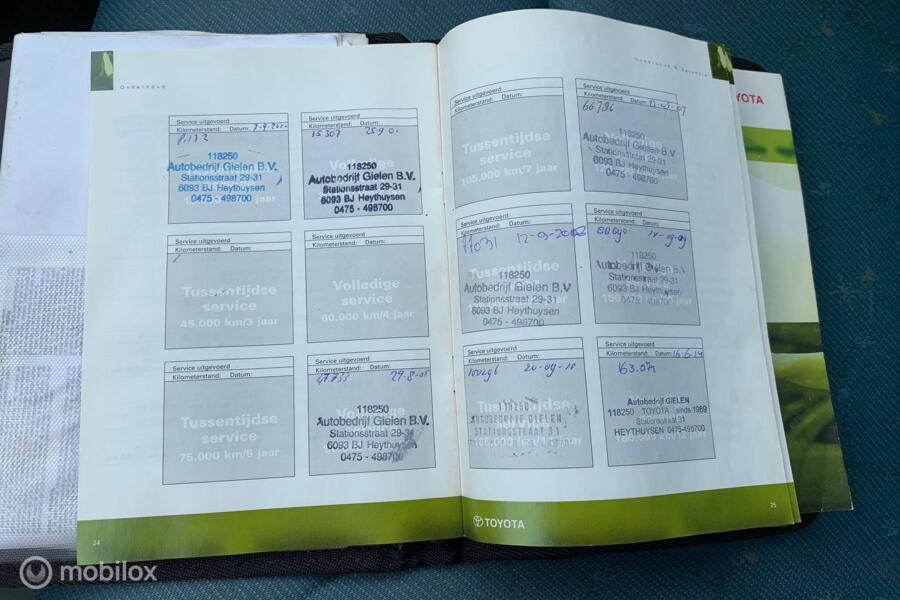 Onderhoud
Service uitgevoerd
Kilometerstand: Datum: 7-9-200
8.172
118250
Autobedrijf Gielen B.V.
Stationsstraat 29-31
6093 BJ Heythuysen
0475 - 498700
Service uitgevoerd
Kilometerstand: Datum:
15307 25-9-01
Volledige
118250
Autobedrijf Gielen B.V.
Stationsstraat 29-31
6093 BJ Heythuysen
0475 - 498700
Service uitgevoerd
Kilometerstand: Datum:
Tussentijdse
service
45.000 km/3 jaar
Service uitgevoerd
Kilometerstand: Datum:
Volledige
service
60.000 km/4 jaar
Service uitgevoerd
Kilometerstand: Datum:
Tussentijdse
service
75.000 km/5 jaar
Service uitgevoerd
Kilometerstand: Datum:
47733 29-8-05
118250
Autobedrijf Gielen B.V.
Stationsstraat 29-31
6093 BJ Heythuysen
0475 - 498700
24
Onderhoud & Garantie
Service uitgevoerd
Kilometerstand: Datum:
Tussentijdse
service
105.000 km/7 jaar
Service uitgevoerd
Kilometerstand: Datum:
66796
118250
Autobedrijf Gielen B.V.
Stationsstraat 29-31
6093 BJ Heythuysen
0475 - 498700
Service uitgevoerd
Kilometerstand: Datum:
12-09-2008
Tussentijdse
118250
Autobedrijf Gielen B.V
Stationsstraat 29-31
6093 BJ Heythuysen
0475 - 498700
Service uitgevoerd
Kilometerstand: Datum:
18-09-09
118250
Autobedrijf Gielen B.V.
Stationsstraat 29-31
6093 BJ Heythuysen
0475 - 498700
Service uitgevoerd
Kilometerstand: Datum:
20-09-10
Tussentijdse
118250
AUTOBEDRIJF GIELEN
STATIONSSTRAAT 31
Service uitgevoerd
Kilometerstand: Datum: 16-6-14
163.071
Autobedrijf GIELEN
118250 TOYOTA sinds 1969
Stationsstraat 31
HEYTHUYSEN 0475-498700
TOYOTA
25
TOYOTA
mobilox